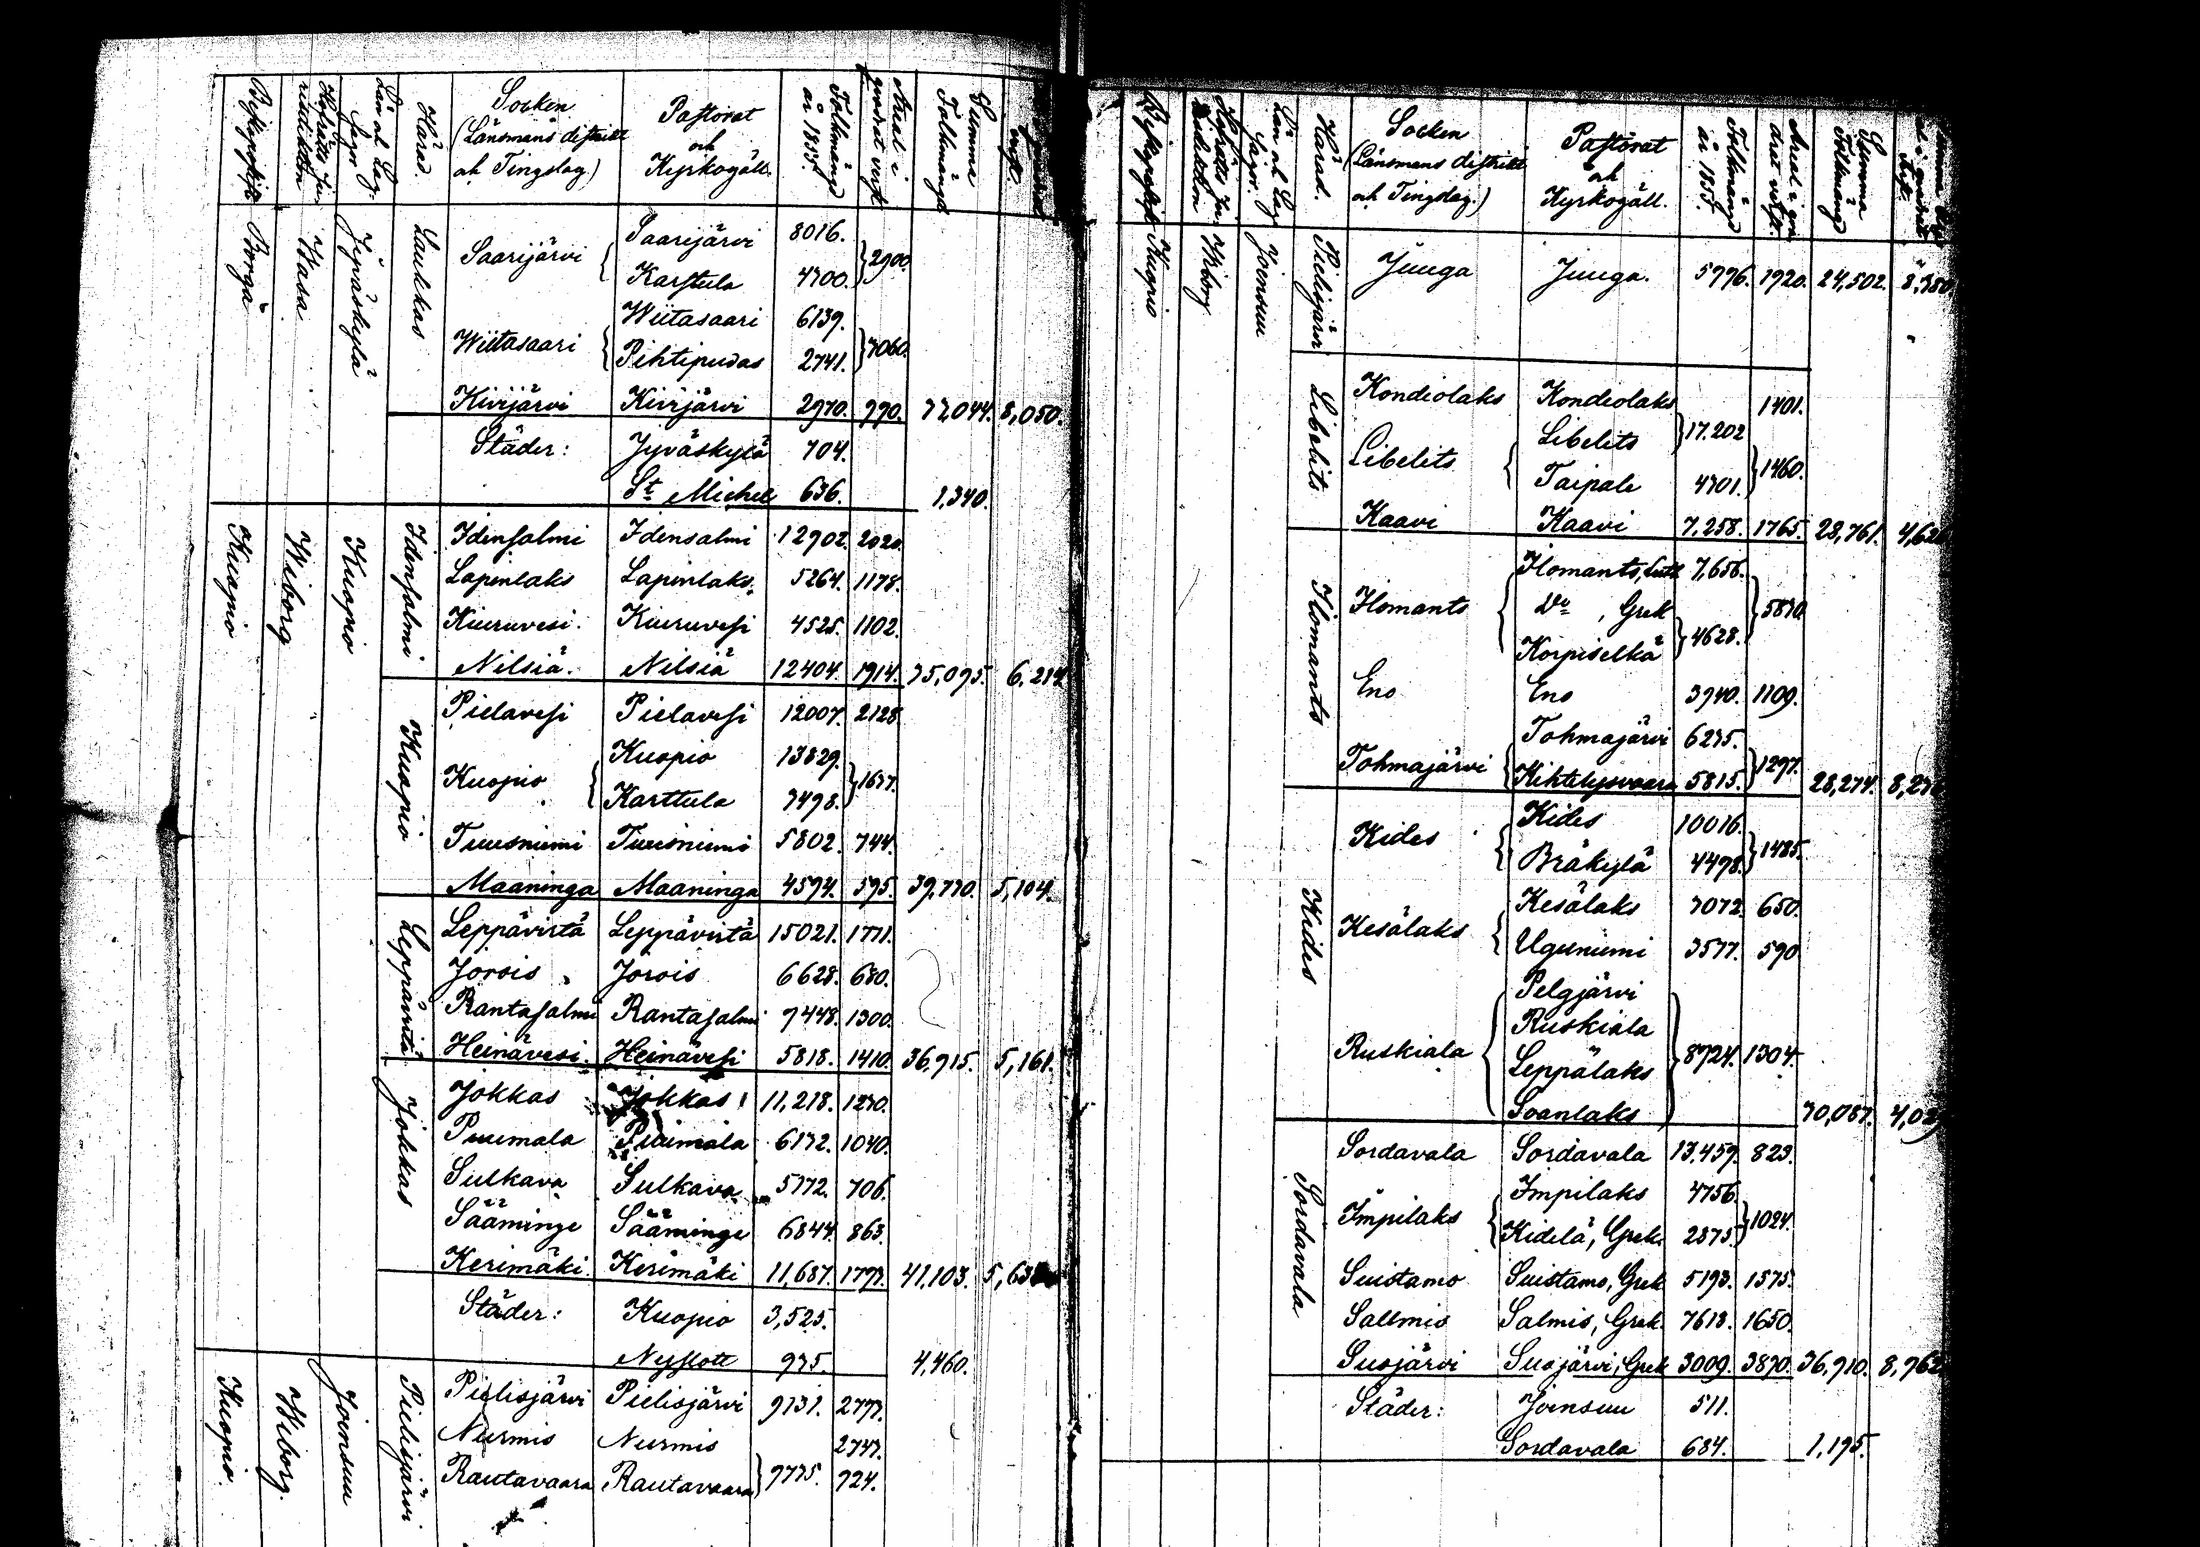 Socken
(Länsmans distrikt
och Tingslag.)
Pastorat
och
Kyrkogäll.
Folkmängd
år 1855.
Areal i
qvadrat verst
Summa
Folkmängd
Härad.
Län och Lag-
sagor.
Borgå
Wasa
Jyväskylä
Laukkas
Saarijärvi Saarijärvi 8016. 2900.
Karstula 4700.
Wiitasaari Wiitasaari 6139. 3060.
Pihtipudas 2741.
Kivijärvi Kivijärvi 2970. 990. 32044. 8,050.
Städer: Jyväskylä 704.
St Michel 636. 1,340.
Kuopio
Wiborg
Kuopio
Idensalmi
Idensalmi Idensalmi 12902. 2020.
Lapinlaks Lapinlaks. 5264. 1178.
Kiuruvesi. Kiuruvesi 4525. 1102.
Nilsiä. Nilsiä 12404. 1914. 35,095. 6,214
Kuopio
Pielavesi Pielavesi 12007. 2128
Kuopio Kuopio 13829. 1637.
Karttula 3498.
Tuusniemi Tuusniemi 5802. 744.
Maaninga Maaninga 4594. 595. 39,730. 5,104.
Leppävirta
Leppävirta Leppävirta 15021. 1771.
Jorois Jorois 6628. 680.
Rantasalmi Rantasalmi 9448. 1300.
Heinävesi. Heinävesi 5818. 1410. 36,915. 5,161.
Jokkas
Jokkas Jokkas 11,218. 1230.
Puumala Puumala 6132. 1040.
Sulkava Sulkava 5172. 706.
Sääminge Sääminge 6844. 863.
Kerimäki. Kerimäki 11,687. 1793. 41,103.
Städer: Kuopio 3,525.
Nyslott 935. 4,460.
Kuopio.
Wiborg.
Joensuu
Pielisjärvi
Pielisjärvi Pielisjärvi 9131. 2793.
Nurmis Nurmis 2743.
Rautavaara Rautavaara 9775. 924.
Socken
(Länsmans distrikt
och Tingslag.)
Pastorat
och
Kyrkogäll.
Folkmängd
år 1855.
Summa
Folkmängd
Härad.
Län och Lag-
sagor.
Kuopio
Wiborg
Joensuu
Pielisjärvi
Juuga Juuga. 5996. 1920. 24,502. 8,380
Libelits
Kondiolaks Kondiolaks 17.202 1401.
Libelits Libelits 1460.
Taipale 4301.
Kaavi Kaavi 7,258. 1765. 28,761. 4,626
Ilomants
Ilomants Ilomants, Luth 7,656. 5870.
Do, Grek 4628.
Korpiselkä
Eno Eno 3940. 1109.
Tohmajärvi Tohmajärvi 6235. 1297.
Kihtelysvaara 5815. 28,274.
Kides
Kides Kides 10016. 1485.
Bräkylä 4498.
Kesälaks Kesälaks 3072. 650.
Uguniemi 3577. 590
Ruskiala Pelgjärvi 8924. 1304.
Ruskiala
Leppälaks
Soanlaks 30,087.
Sordavala
Sordavala Sordavala 13.459. 823.
Impilaks Impilaks 4756. 1024.
Kidelä, Grek. 2875.
Suistamo Suistamo, Grek 5193. 1575.
Sallmis Salmis, Grek. 7618. 1650.
Suojärvi Suojärvi, Grek 3009. 3890. 36,910. 8,962
Städer: Joensuu 511.
Sordavala 684. 1,195.